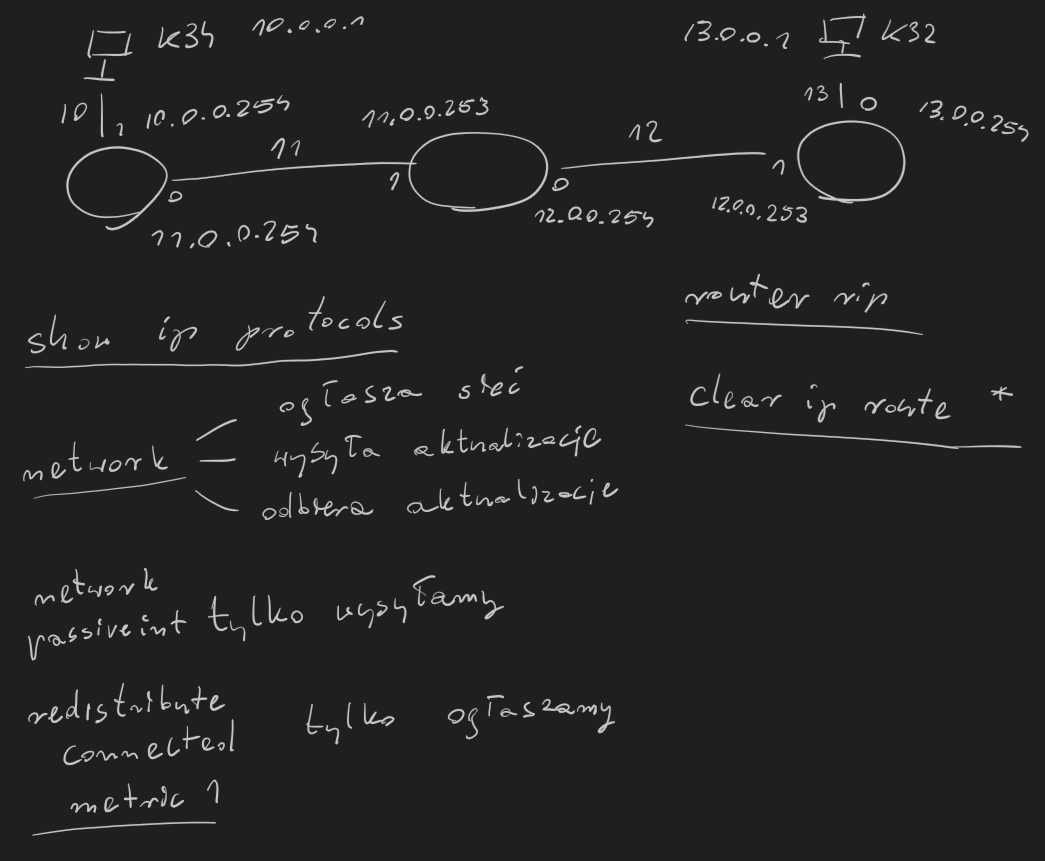 K34 10.0.0.1
13.0.0.1 K32
10 1 10.0.0.254
11.0.0.253
13 0 13.0.0.254
11
12
0
1
0
1
11.0.0.254
12.0.0.254
12.0.0.253
show ip protocols
router rip
clear ip route *
network
ogłasza sieć
wysyła aktualizacje
odbiera aktualizacje
network
passive int tylko wysyłamy
redistribute
connected
metric 1
tylko ogłaszamy